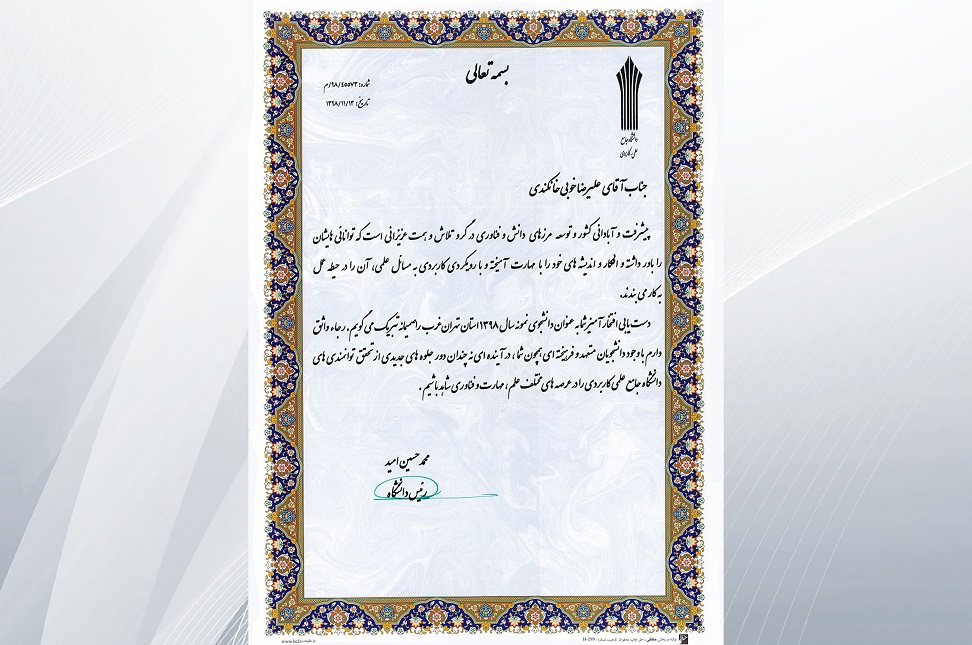 بسمه تعالی
شماره: ۹۸/٤٥٥٧۲/م
تاریخ: ۱۳۹۸/۱۱/۱۳
دانشگاه جامع
علمی کاربردی
جناب آقای علیرضا خوبی خانکندی
پیشرفت و آبادانی کشور و توسعه مرزهای دانش و فناوری در گرو تلاش و همت عزیزانی است که توانائی هایشان
را باور داشته و افکار و اندیشه های خود را با مهارت آمیخته و با رویکردی کاربردی به مسائل علمی، آن را در حیطه عمل
به کار می بندند.
دست یابی افتخار آمیز شما به عنوان دانشجوی نمونه سال ۱۳۹۸ استان تهران غرب را صمیمانه تبریک می گویم. رجاء واثق
دارم با وجود دانشجویان متعهد و فرهیخته ای همچون شما، در آینده ای نه چندان دور جلوه های جدیدی از تحقق توانمندی های
دانشگاه جامع علمی کاربردی را در عرصه های مختلف علم، مهارت و فناوری شاهد باشیم.
محمد حسین امید
رئیس دانشگاه